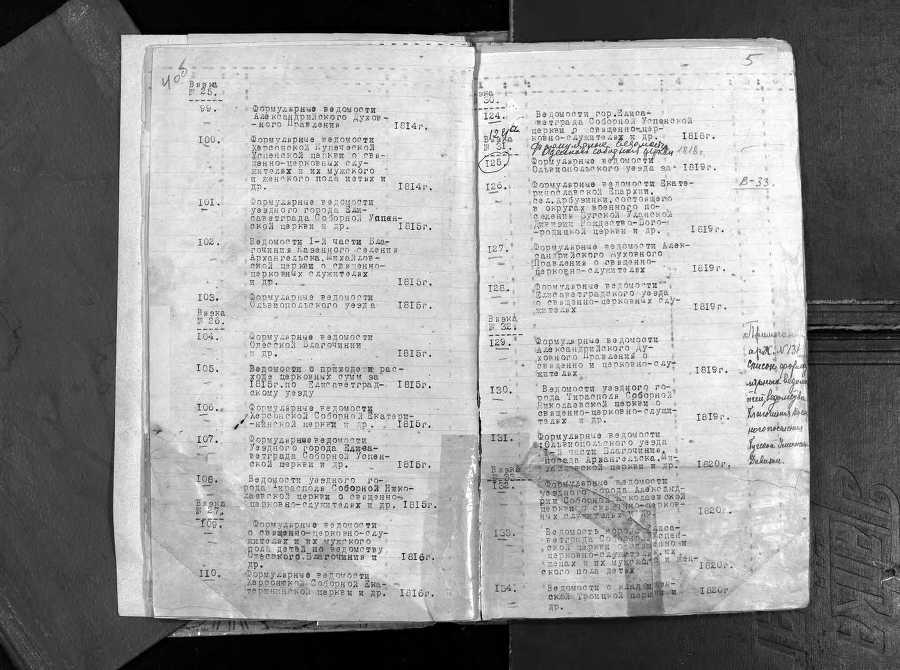 Вязка
№ 25.
99. Формулярные ведомости
Александрийского Духов-
-ного Правления 1814г.
100. Формулярные ведомости
Херсонской Купеческой
Успенской церкви о свя-
щенно-церковных слу-
жителях и их мужского
и женского пола детях и
др. 1814г.
101. Формулярные ведомости
уездного города Ели-
саветграда Соборной Успен-
ской церкви и др. 1815г.
102. Ведомости I-й части Бла-
гочиния Казенного селения
Архангельска, Михайлов-
ской церкви о священно-
церковных служителях
и др. 1815г.
103. Формулярные ведомости
Ольвиопольского уезда 1815г.
Вязка
№ 26.
104. Формулярные ведомости
Одесской Благочинии
и др. 1815г.
105. Ведомости о приходе и рас-
ходе церковных сумм за
1815г.по Елисаветград- 1815г.
скому уезду
106. Формулярные ведомости
Херсонской Соборной Екатери-
-нинской церкви и др. 1815г.
107. Формулярные ведомости
Уездного города Елиса-
ветграда Соборной Успен-
ской церкви и др. 1815г.
108. Ведомости уездного го-
рода Тирасполя Соборной Нико-
лаевской церкви о священно-
церковно-служителях и др. 1815г.
Вязка
№ 27.
109. Формулярные ведомости
о священно-церковно-слу-
жителях и их мужского
пола детей по ведомству
Одесского Благочиния и 1816г.
др.
110. Формулярные ведомости
Херсонской Соборной Ека-
терининской церкви и др. 1816г.
5
30.
124. Ведомости гор.Елиса-
ветграда Соборной Успенской
церкви о священно-цер-
ковно-служителях и др. 1818г.
124а
№ 31. Формулярные ведомости
Успенской соборной церкви 1818г.
125. Формулярные ведомости
Ольвиопольского уезда за 1819г.
126. Формулярные ведомости Екате-
ринославской Епархии,
сел.Арбузинки, состоящего
в округах военного по-
селения Бугской Уланской
Дивизии Рождества-Бого-
-родицкой церкви и др. 1819г.
В-33.
127. Формулярные ведомости Алек-
сандрийского Духовного
Правления о священно-
церковно-служителях 1819г.
128. Формулярные ведомости
Елисаветградского уезда
о священно-церковных слу-
жителях 1819г.
Вязка
№ 32.
129. Формулярные ведомости
Александрийского Ду-
ховного Правления о
священно и церковно-слу-
жителях 1819г.
130. Ведомости уездного го-
рода Тирасполя Соборной
Николаевской церкви о
священно-церковно-служи-
телях и др. 1819г.
131. Формулярные ведомости
Ольвиопольского уезда
I-й части Благочиние,
посада Архангельска, Ми-
хайловской церкви и др. 1820г.
Вязка
132. Формулярные ведомости
уездного города Александ-
рии Соборной Николаевской
церкви о священно-церков-
ных служителях и др. 1820г.
133. Ведомость города Елиса-
ветграда Соборной Успен-
ской церкви о священно и
церковно-служителях, их
женах и их мужского и жен-
ского пола детях 1820г.
134. Ведомости о
ской Троицкой церкви и 1820г
др.
арх. №131
список